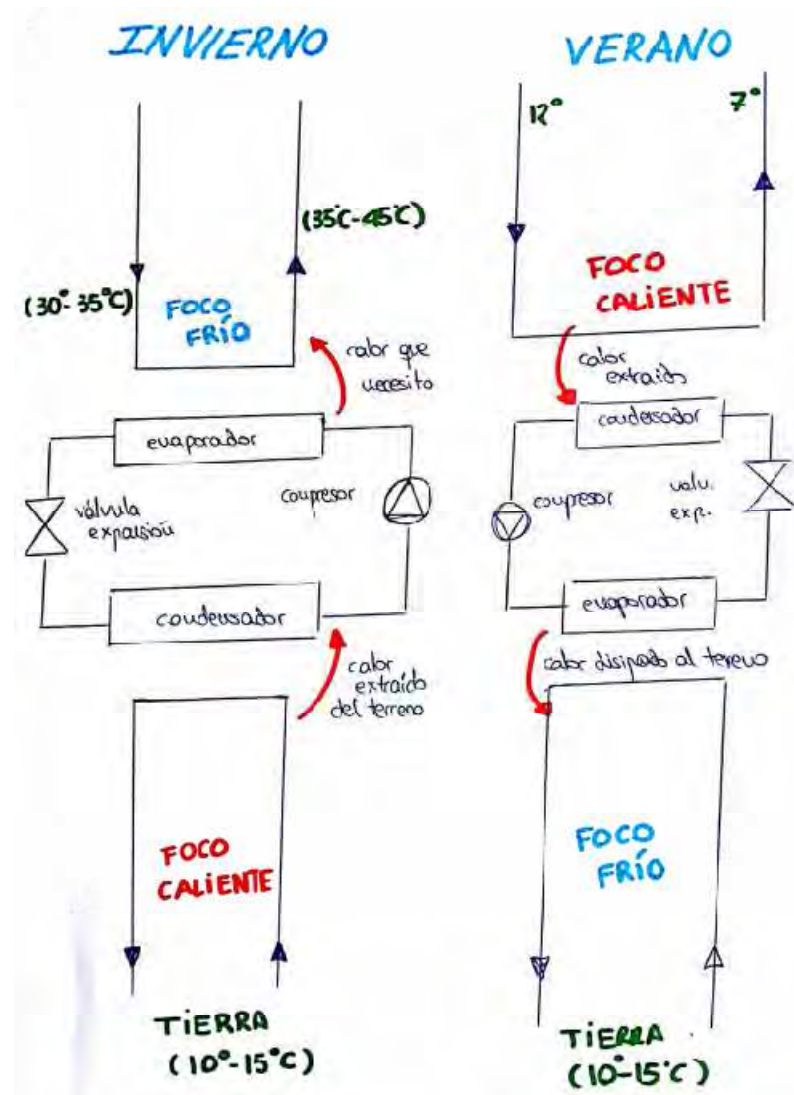 INVIERNO
(35°C-45°C)
(30°-35°C)
FOCO
FRÍO
calor que
necesito
evaporador
válvula
expansión
compresor
condensador
calor
extraído
del terreno
FOCO
CALiENTE
TiERRA
(10°-15°C)
VERANO
12°
7°
FOCO
CALiENTE
calor
extraido
condensador
compresor
valv.
exp.
evaporador
calor disipado al terreno
FOCO
FRÍO
TiERRA
(10°-15°C)